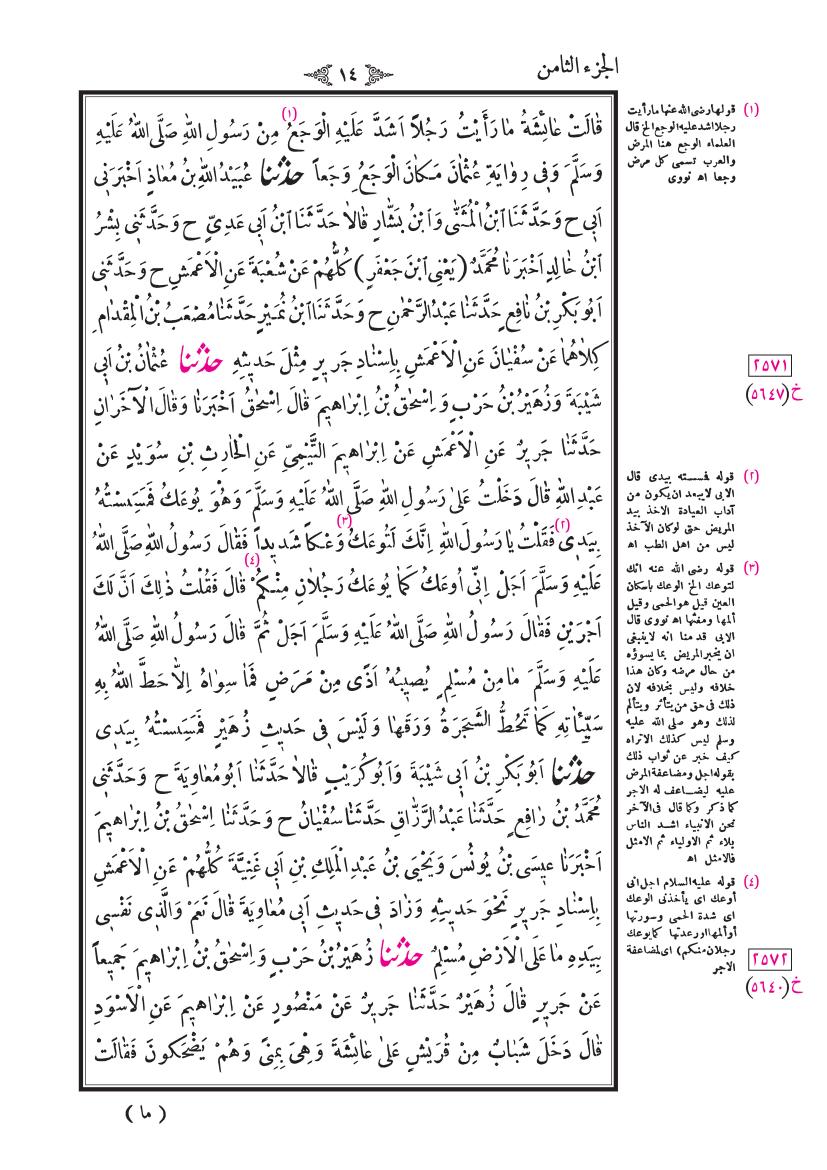 الجزء الثامن
١٤
قَالَتْ عَائِشَةُ مَا رَأَيْتُ رَجُلاً اَشَدَّ عَلَيْهِ الْوَجَعُ (١) مِنْ رَسُولِ اللهِ صَلَّى اللهُ عَلَيْهِ
وَسَلَّمَ وَفِى رِوَايَةِ عُثْمَانَ مَكَانَ الْوَجَعُ وَجَعاً حَدَّثَنَا عُبَيْدُ اللهِ بْنُ مُعَاذٍ اَخْبَرَنِى
اَبِى ح وَحَدَّثَنَا ابْنُ الْمُثَنَّى وَابْنُ بَشَّارٍ قَالاَ حَدَّثَنَا ابْنُ اَبِى عَدِىٍّ ح وَحَدَّثَنِى بِشْرُ
ابْنُ خَالِدٍ اَخْبَرَنَا مُحَمَّدٌ (يَعْنِى ابْنَ جَعْفَرٍ) كُلُّهُمْ عَنْ شُعْبَةَ عَنِ الْاَعْمَشِ ح وَحَدَّثَنِى
اَبُو بَكْرِ بْنُ نَافِعٍ حَدَّثَنَا عَبْدُ الرَّحْمٰنِ ح وَحَدَّثَنَا ابْنُ نُمَيْرٍ حَدَّثَنَا مُصْعَبُ بْنُ الْمِقْدَامِ
كِلاَهُمَا عَنْ سُفْيَانَ عَنِ الْاَعْمَشِ بِاِسْنَادِ جَرِيرٍ مِثْلَ حَدِيثِهِ حَدَّثَنَا عُثْمَانُ بْنُ اَبِى
شَيْبَةَ وَزُهَيْرُ بْنُ حَرْبٍ وَاِسْحٰقُ بْنُ اِبْرَاهِيمَ قَالَ اِسْحٰقُ اَخْبَرَنَا وَقَالَ الْآخَرَانِ
حَدَّثَنَا جَرِيرٌ عَنِ الْاَعْمَشِ عَنْ اِبْرَاهِيمَ التَّيْمِىِّ عَنِ الْحَارِثِ بْنِ سُوَيْدٍ عَنْ
عَبْدِ اللهِ قَالَ دَخَلْتُ عَلىٰ رَسُولِ اللهِ صَلَّى اللهُ عَلَيْهِ وَسَلَّمَ وَهُوَ يُوعَكُ فَمَسِسْتُهُ
بِيَدِى (٢) فَقُلْتُ يَا رَسُولَ اللهِ اِنَّكَ لَتُوعَكُ (٣) وَعْكاً شَدِيداً فَقَالَ رَسُولُ اللهِ صَلَّى اللهُ
عَلَيْهِ وَسَلَّمَ اَجَلْ اِنِّى اُوعَكُ كَمَا يُوعَكُ رَجُلاَنِ مِنْكُمْ (٤) قَالَ فَقُلْتُ ذٰلِكَ اَنَّ لَكَ
اَجْرَيْنِ فَقَالَ رَسُولُ اللهِ صَلَّى اللهُ عَلَيْهِ وَسَلَّمَ اَجَلْ ثُمَّ قَالَ رَسُولُ اللهِ صَلَّى اللهُ
عَلَيْهِ وَسَلَّمَ مَا مِنْ مُسْلِمٍ يُصِيبُهُ اَذًى مِنْ مَرَضٍ فَمَا سِوَاهُ اِلاَّ حَطَّ اللهُ بِهِ
سَيِّئَاتِهِ كَمَا تَحُطُّ الشَّجَرَةُ وَرَقَهَا وَلَيْسَ فِى حَدِيثِ زُهَيْرٍ فَمَسِسْتُهُ بِيَدِى
حَدَّثَنَا اَبُو بَكْرِ بْنُ اَبِى شَيْبَةَ وَاَبُو كُرَيْبٍ قَالاَ حَدَّثَنَا اَبُو مُعَاوِيَةَ ح وَحَدَّثَنِى
مُحَمَّدُ بْنُ رَافِعٍ حَدَّثَنَا عَبْدُ الرَّزَّاقِ حَدَّثَنَا سُفْيَانُ ح وَحَدَّثَنَا اِسْحٰقُ بْنُ اِبْرَاهِيمَ
اَخْبَرَنَا عِيسَى بْنُ يُونُسَ وَيَحْيَى بْنُ عَبْدِ الْمَلِكِ بْنِ اَبِى غَنِيَّةَ كُلُّهُمْ عَنِ الْاَعْمَشِ
بِاِسْنَادِ جَرِيرٍ نَحْوَ حَدِيثِهِ وَزَادَ فِى حَدِيثِ اَبِى مُعَاوِيَةَ قَالَ نَعَمْ وَالَّذِى نَفْسِى
بِيَدِهِ مَا عَلَى الْاَرْضِ مُسْلِمٌ حَدَّثَنَا زُهَيْرُ بْنُ حَرْبٍ وَاِسْحٰقُ بْنُ اِبْرَاهِيمَ جَمِيعاً
عَنْ جَرِيرٍ قَالَ زُهَيْرٌ حَدَّثَنَا جَرِيرٌ عَنْ مَنْصُورٍ عَنْ اِبْرَاهِيمَ عَنِ الْاَسْوَدِ
قَالَ دَخَلَ شَبَابٌ مِنْ قُرَيْشٍ عَلىٰ عَائِشَةَ وَهِىَ بِمِنًى وَهُمْ يَضْحَكُونَ فَقَالَتْ
(ما)
(١) قولها رضى الله عنها ما رأيت
رجلا اشد عليه الوجع الخ قال
العلماء الوجع هنا المرض
والعرب تسمى كل مرض
وجعا اه نووى
٢٥٧١
خ (٥٦٤٧)
(٢) قوله فمسسته بيدى قال
الابى لا يبعد ان يكون من
آداب العيادة الاخذ بيد
المريض حتى لو كان الآخذ
ليس من اهل الطب اه
(٣) قوله رضى الله عنه انك
لتوعك الخ الوعك باسكان
العين قيل هو الحمى وقيل
ألمها ومغثها اه نووى قال
الابى قدمنا انه لا ينبغى
ان يخبر المريض بما يسوؤه
من حال مرضه وكان هذا
خلافه وليس بخلافه لان
ذلك فى حق من يتأثر ويتألم
لذلك وهو صلى الله عليه
وسلم ليس كذلك الا تراه
كيف خبر عن ثواب ذلك
بقوله اجل ومضاعفة المرض
عليه ليضاعف له الاجر
كما ذكر وكما قال فى الآخر
نحن الانبياء اشد الناس
بلاء ثم الاولياء ثم الامثل
فالامثل اه
(٤) قوله عليه السلام اجل انى
أوعك اى يأخذنى الوعك
اى شدة الحمى وسورتها
أو ألمها او رعدتها كما يوعك
رجلان منكم) اى لمضاعفة
الاجر
٢٥٧٢
خ (٥٦٤٠)